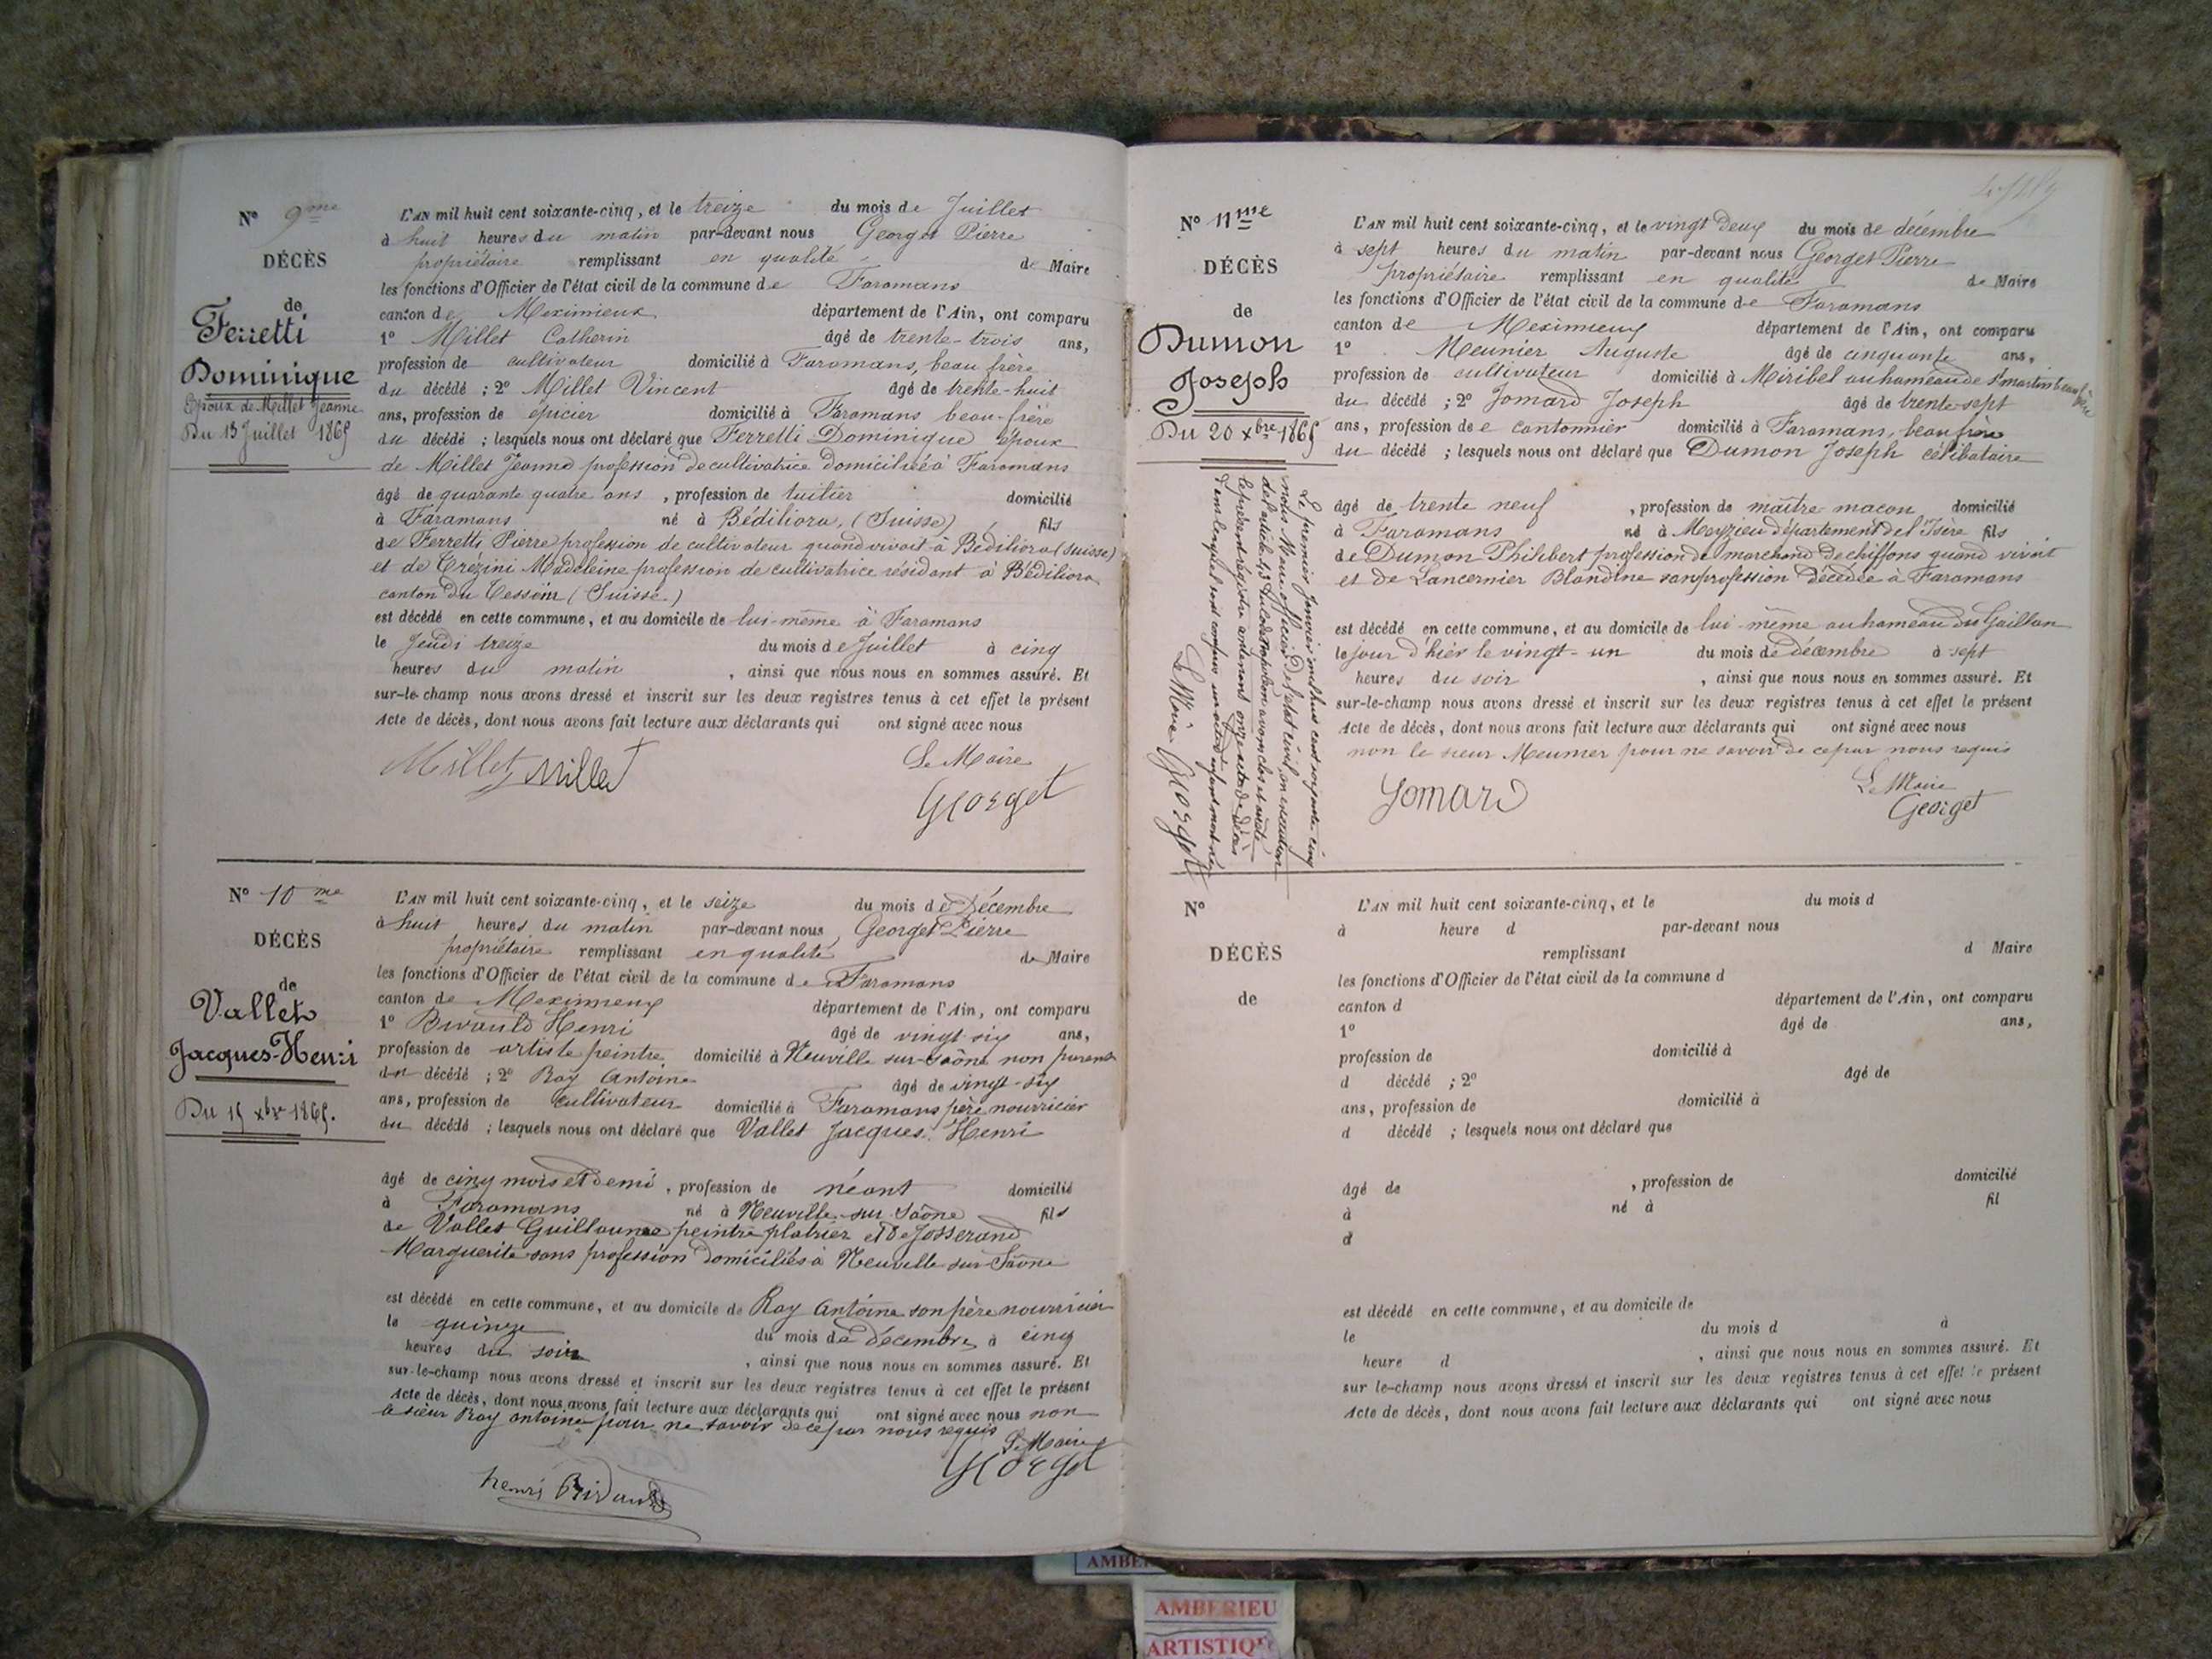 N° 9me
DÉCÈS
de
Ferretti
Dominique
Epoux de Millet Jeanne
Du 13 Juillet 1865
L'AN mil huit cent soixante-cinq, et le treize du mois de Juillet
à huit heures du matin par-devant nous Georget Pierre
propriétaire remplissant en qualité de Maire
les fonctions d'Officier de l'état civil de la commune de Faramans
canton de Meximieux département de l'Ain, ont comparu
1° Millet Catherin âgé de trente-trois ans,
profession de cultivateur domicilié à Faramans, beau frère
du décédé ; 2° Millet Vincent âgé de trente-huit
ans, profession de épicier domicilié à Faramans beau-frère
du décédé ; lesquels nous ont déclaré que Ferretti Dominique époux
de Millet Jeanne profession de cultivatrice domiciliée à Faramans
âgé de quarante quatre ans, profession de tuilier domicilié
à Faramans né à Bédiliora, (Suisse) fils
de Ferretti Pierre profession de cultivateur quand vivait à Bédiliora (Suisse)
et de Crézini Madeleine profession de cultivatrice résidant à Bédiliora
canton du Tessein (Suisse)
est décédé en cette commune, et au domicile de lui-même à Faramans
le Jeudi treize du mois de Juillet à cinq
heures du matin, ainsi que nous nous en sommes assuré. Et
sur-le-champ nous avons dressé et inscrit sur les deux registres tenus à cet effet le présent
Acte de décès, dont nous avons fait lecture aux déclarants qui ont signé avec nous
Millet Millet
Le Maire
Georget
N° 10me
DÉCÈS
de
Vallet
Jacques-Henri
Du 15 xbre 1865.
L'AN mil huit cent soixante-cinq, et le seize du mois de Décembre
à huit heures du matin par-devant nous Georget Pierre
propriétaire remplissant en qualité de Maire
les fonctions d'Officier de l'état civil de la commune de Faramans
canton de Meximieux département de l'Ain, ont comparu
1° Henri âgé de vingt-six ans,
profession de artiste peintre domicilié à Neuville sur-Saône non parent
du décédé ; 2° Ray Antoine âgé de vingt-six
ans, profession de cultivateur domicilié à Faramans père nourricier
du décédé ; lesquels nous ont déclaré que Vallet Jacques Henri
âgé de cinq mois et demi, profession de néant domicilié
à Faramans né à Neuville-sur Saône fils
de Vallet Guillaume peintre plâtrier et de Josserand
Marguerite sans profession domiciliés à Neuville-sur-Saône
est décédé en cette commune, et au domicile de Ray Antoine son père nourricier
le quinze du mois de décembre à cinq
heures du soir, ainsi que nous nous en sommes assuré. Et
sur-le-champ nous avons dressé et inscrit sur les deux registres tenus à cet effet le présent
Acte de décès, dont nous avons fait lecture aux déclarants qui ont signé avec nous non
le sieur Ray antoine pour ne savoir de ce par nous requis
Le Maire
Georget
henri
N° 11me
DÉCÈS
de
Dumon
Joseph
Du 20 xbre 1865
Le premier Janvier mil huit cent soixante cinq
nous Maire officier de l'état civil, en exécution
de l'article 43 du code Napoléon avons clos et arrêté
le présent registre contenant onze actes de décès
Le Maire Georget
L'AN mil huit cent soixante-cinq, et le vingt deux du mois de décembre
à sept heures du matin par-devant nous Georget Pierre
propriétaire remplissant en qualité de Maire
les fonctions d'Officier de l'état civil de la commune de Faramans
canton de Meximieux département de l'Ain, ont comparu
1° Meunier Auguste âgé de cinquante ans,
profession de cultivateur domicilié à Miribel au hameau de St martin beau frère
du décédé ; 2° Jomard Joseph âgé de trente-sept
ans, profession de cantonnier domicilié à Faramans, beau frère
du décédé ; lesquels nous ont déclaré que Dumon Joseph célibataire
âgé de trente neuf, profession de maître maçon domicilié
à Faramans né à Meyzieu département de l'Isère fils
de Dumon Philibert profession de marchand de chiffons quand vivait
et de Lancernier Blandine sans profession décédée à Faramans
est décédé en cette commune, et au domicile de lui-même au hameau du Gaillan
le jour d'hier le vingt-un du mois de décembre à sept
heures du soir, ainsi que nous nous en sommes assuré. Et
sur-le-champ nous avons dressé et inscrit sur les deux registres tenus à cet effet le présent
Acte de décès, dont nous avons fait lecture aux déclarants qui ont signé avec nous
non le sieur Meunier pour ne savoir de ce par nous requis
Jomard
Le Maire
Georget
N°
DÉCÈS
de
L'AN mil huit cent soixante-cinq, et le du mois d
à heure d par-devant nous
remplissant d Maire
les fonctions d'Officier de l'état civil de la commune d
canton d département de l'Ain, ont comparu
1° âgé de ans,
profession de domicilié à
d décédé ; 2° âgé de
ans, profession de domicilié à
d décédé ; lesquels nous ont déclaré que
âgé de , profession de domicilié
à né à fil
d
est décédé en cette commune, et au domicile de
le du mois d à
heure d , ainsi que nous nous en sommes assuré. Et
sur le-champ nous avons dressé et inscrit sur les deux registres tenus à cet effet le présent
Acte de décès, dont nous avons fait lecture aux déclarants qui ont signé avec nous
AMBERIEU
ARTISTIQUE